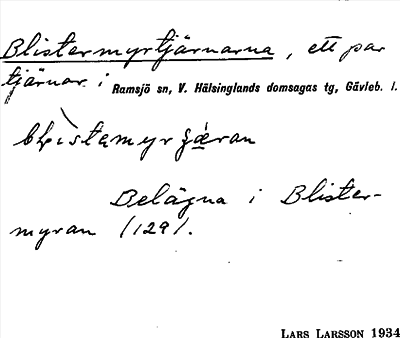 Blistermyrtjärnarna, ett par
tjärnar i Ramsjö sn, V. Hälsinglands domsagas tg, Gävleb. l.
Belägna i Blister-
myran /129/.
LARS LARSSON 1934